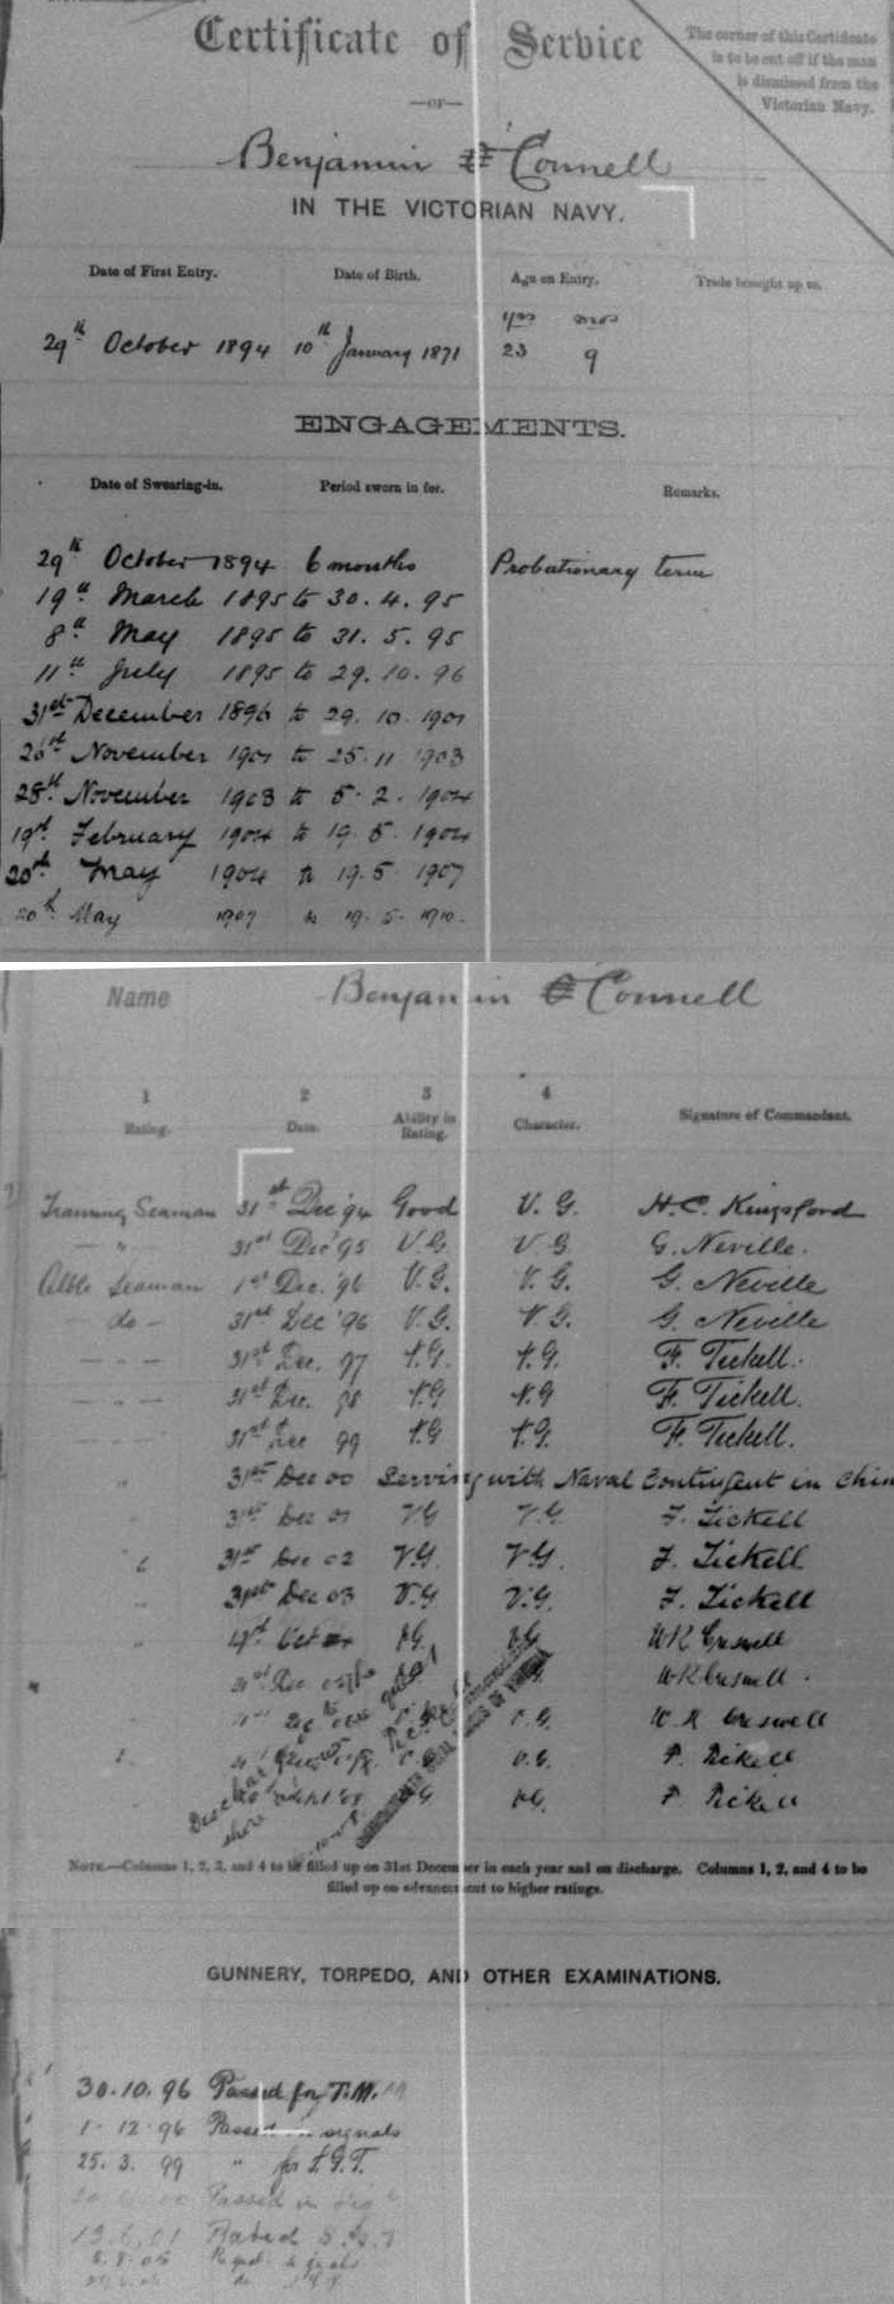 Certificate of Service
The corner of this Certificate
is to be cut off if the man
is dismissed from the
Victorian Navy.
—OF—
Benjamin O'Connell
IN THE VICTORIAN NAVY.
Date of First Entry. Date of Birth. Age on Entry. Trade brought up to.
yrs mos
29th October 1894 10th January 1871 23 9
ENGAGEMENTS.
Date of Swearing-in. Period sworn in for. Remarks.
29th October 1894 6 months Probationary term
19th March 1895 to 30. 4. 95
8th May 1895 to 31. 5. 95
11th July 1895 to 29. 10. 96
31st December 1896 to 29. 10. 1901
26th November 1901 to 25. 11 1903
28th November 1903 to 5. 2. 1904
19th February 1904 to 19. 5. 1904
20th May 1904 to 19. 5. 1907
20th May 1907 to 19. 5. 1910.
Name Benjamin O Connell
1 2 3 4
Rating. Date. Ability in Rating. Character. Signature of Commandant.
Training Seaman 31st Dec '94 Good V. G. H. C. Kingsford
— " — 31st Dec '95 V. G. V. G. G. Neville.
Able Seaman 1st Dec. '96 V. G. V. G. G. Neville
do — 31st Dec '96 V. G. V. G. G. Neville
— " — 31st Dec. 97 V. G. V. G. F. Tickell.
— " — 31st Dec. 98 V. G V. G F. Tickell.
— " — 31st Dec 99 V. G V. G. F. Tickell.
" 31st Dec 00 Serving with Naval Contingent in Chin
" 31st Dec 01 VG V.G. F. Tickell
" 31st Dec 02 V.G. V.G. F. Tickell
" 31st Dec 03 V.G V.G. F. Tickell
" Oct VG. VG WR Creswell
31st Dec WR Creswell.
" V. G. W. R Creswell
V. G. F. Tickell
VG VG. F Tickell
NOTE.—Columns 1, 2, 3, and 4 to be filled up on 31st December in each year and on discharge. Columns 1, 2, and 4 to be
filled up on advancement to higher ratings.
GUNNERY, TORPEDO, AND OTHER EXAMINATIONS.
30. 10. 96 Passed for T.M.
1 12 96 Passed in signals
25. 3. 99 " for
Passed in
13. 6. 01 Rated